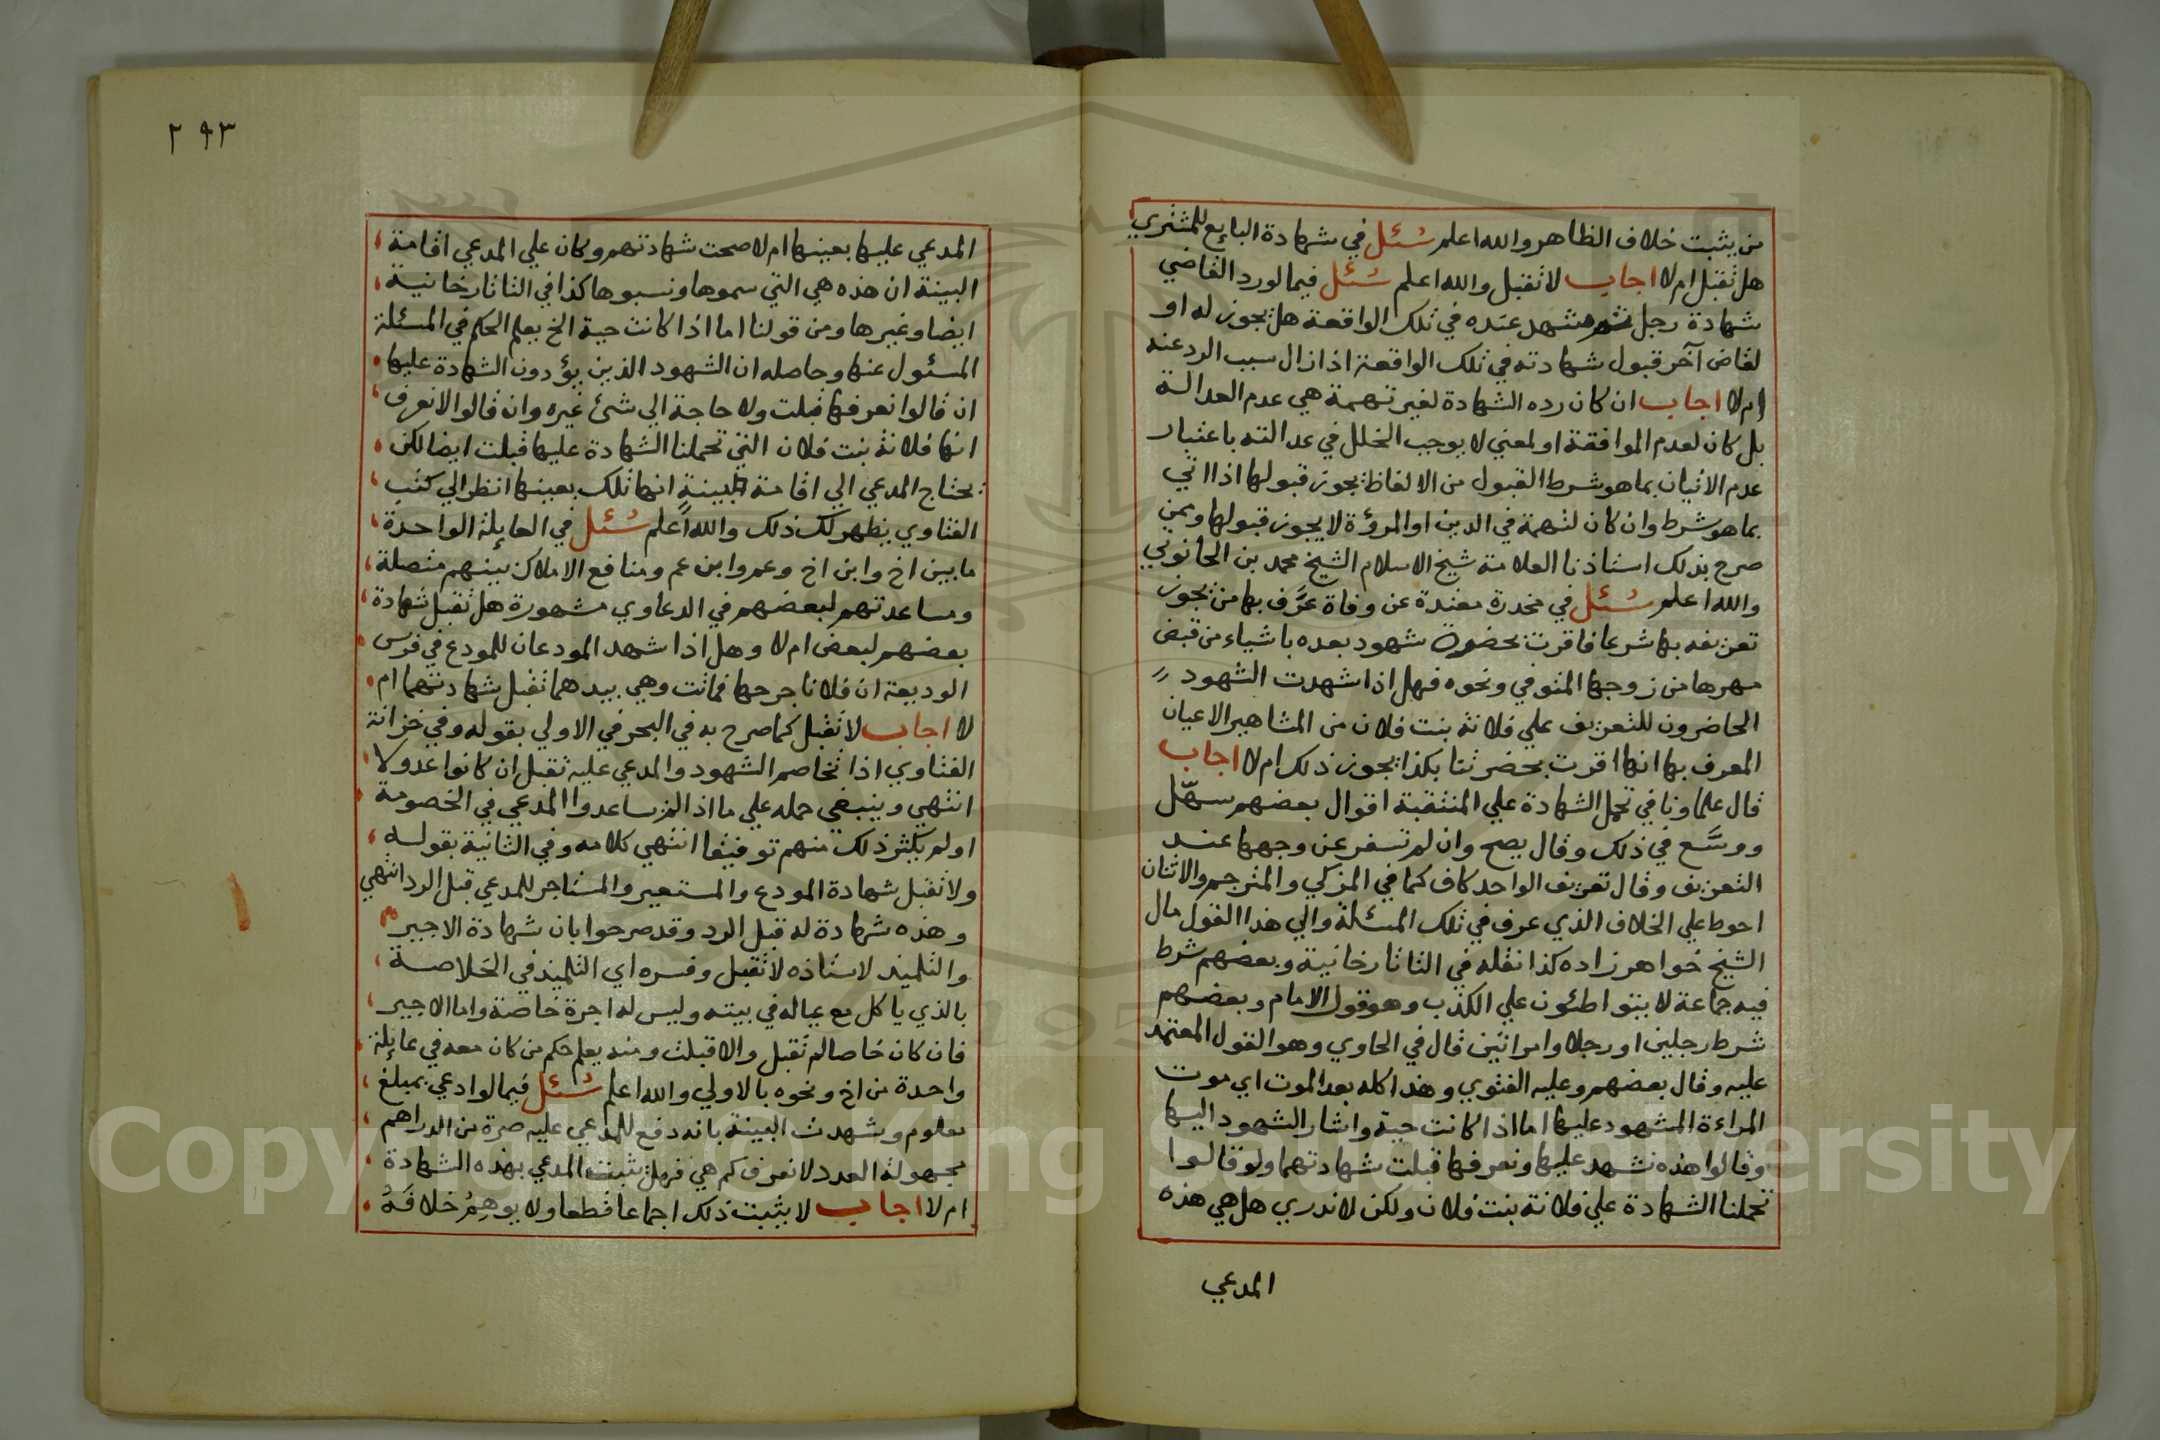 من يثبت خلاف الظاهر والله اعلم سُئل في شهادة البايع للمشتري
هل تقبل ام لا اجاب لا تقبل والله اعلم سُئل فيما لو رد القاضي
شهادة رجل شهد عنده في تلك الواقعة هل يجوز له او
لقاض آخر قبول شهادته في تلك الواقعة اذا زال سبب الرد عنه
ام لا اجاب ان كان رده الشهادة لغير تهمة هي عدم العدالة
بل كان لعدم الموافقة او لمعني لا يوجب الخلل في عدالته باعتبار
عدم الاتيان بما هو شرط القبول من الالفاظ يجوز قبولها اذا اتي
بما هو شرط وان كان لتهمة في الدين او المروٴة لا يجوز قبولها وممن
صرح بذلك استاذنا العلامة شيخ الاسلام الشيخ محمد بن الحانوتي
والله اعلم سُئل في مخدرة معتدة عن وفاة عرَّف بها من يجوز
تعريفه بها شرعا فاقرت بحضورة شهود بعده باشياء من قبض
مهرها من زوجها المتوفي ونحوه فهل اذا شهدت الشهود
الحاضرون للتعريف علي فلانة بنت فلان من المشاهير الاعيان
المعرف بها انها اقرت بحضرتنا بكذا يجوز ذلك ام لا اجاب
قال علماونا في تحمل الشهادة علي المنتقبة اقوال بعضهم سهّل
ووسَّع في ذلك وقال يصح وان لم تسفر عن وجهها عند
التعريف وقال تعريف الواحد كاف كما في المزكي والمترجم والاثنان
احوط علي الخلاف الذي عرف في تلك المسئلة والي هذا القول مال
الشيخ خواهر زاده كذا نقله في التاتارخانية وبعضهم شرط
فيه جماعة لا يتواطئون علي الكذب وهو قول الامام وبعضهم
شرط رجلين او رجلا وامراتين قال في الحاوي وهو القول المعتمد
عليه وقال بعضهم وعليه الفتوي وهذا كله بعد الموت اي موت
المراءة المشهود عليها اما اذا كانت حية واشار الشهود اليها
وقالوا هذه نشهد عليها ونعرفها قبلت شهادتهما ولو قالوا
تحملنا الشهادة علي فلانة بنت فلان ولكن لا ندري هل هي هذه
المدعي
٢٩٣
المدعي عليها بعينها ام لا صحت شهادتهم وكان علي المدعي اقامة
البينة ان هذه هي التي سموها ونسبوها كذا في التاتارخانية
ايضا وغيرها ومن قولنا اما اذا كانت حية الخ يعلم الحكم في المسئلة
المسئول عنها وحاصله ان الشهود الذين يؤدون الشهادة عليها
ان قالوا نعرفها قبلت ولا حاجة الي شئ غيره وان قالوا لا نعرف
انها فلانة بنت فلان التي تحملنا الشهادة عليها قبلت ايضا لكن
يحتاج المدعي الي اقامة بينة انها تلك بعينها انظر الي كتب
الفتاوي يظهر لك ذلك والله اعلم سُئل في العايلة الواحدة
ما بين اخ وابن اخ وعم وابن عم ومنافع الاملاك بينهم متصلة
ومساعدتهم لبعضهم في الدعاوي مشهورة هل تقبل شهادة
بعضهم لبعض ام لا وهل اذا شهد المودعان للمودع في فرس
الوديعة ان فلانا جرحها فماتت وهي بيدهما تقبل شهادتهما ام
لا اجاب لا تقبل كما صرح به في البحر في الاولي بقوله وفي خزانة
الفتاوي اذا تخاصم الشهود والمدعي عليه تقبل ان كانوا عدولا
انتهي وينبغي حمله علي ما اذا لم يساعدوا المدعي في الخصومة
او لم يكثر ذلك منهم توفيقا انتهي كلامه وفي الثانية بقوله
ولا تقبل شهادة المودع والمستعير والمستاجر للمدعي قبل الرد انتهي
وهذه شهادة له قبل الرد وقد صرحوا بان شهادة الاجير
والتلميذ لاستاذه لا تقبل وفسره اي التلميذ في الخلاصة
بالذي ياكل مع عياله في بيته وليس له اجرة خاصة واما الاجير
فان كان خاصا لم تقبل والا قبلت ومنه يعلم حكم من كان معه في عايلة
واحدة من اخ ونحوه بالاولي والله اعلم سُئل فيما لو ادعي بمبلغ
معلوم وشهدت البينة بانه دفع للمدعي عليه صرة من الدراهم
مجهولة العدد لا نعرف كم هي فهل يثبت المدعي بهذه الشهادة
ام لا اجاب لا يثبت ذلك اجماعا قطعا ولا يوهِمُ خلافَهُ
Copyright © King Saud University